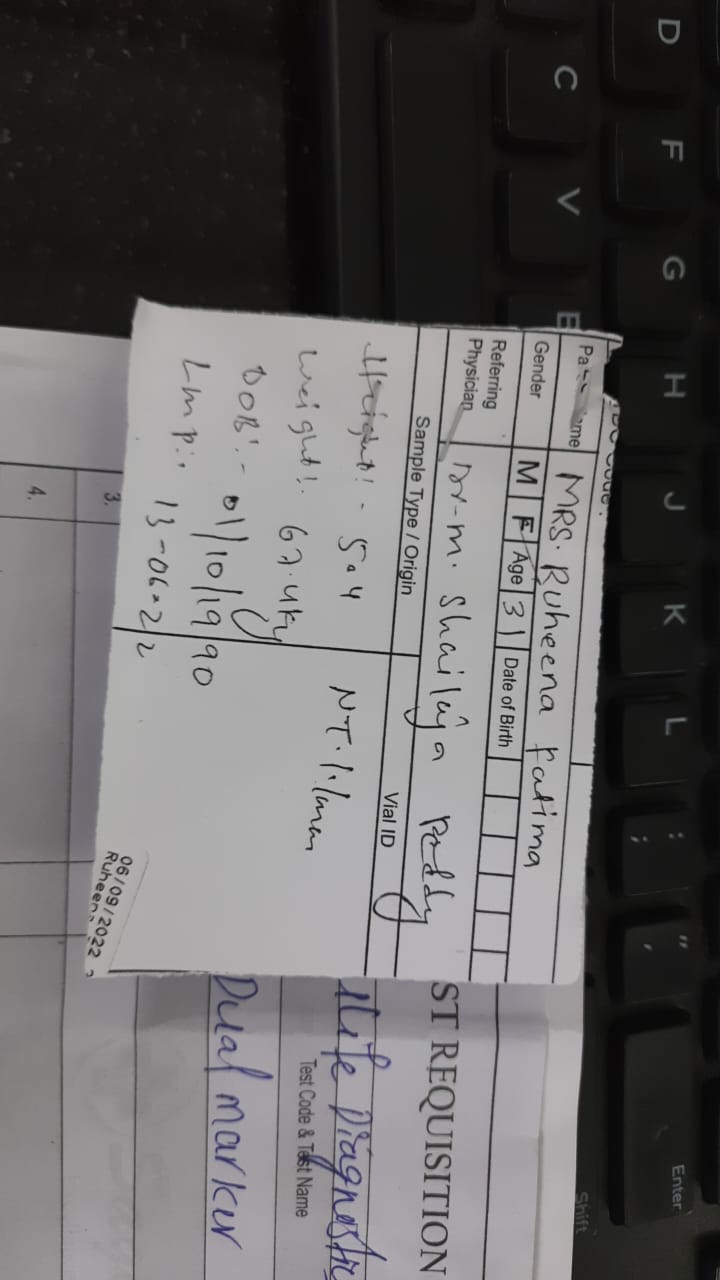 Pa ame MRS. Ruheena Fatima
Gender M F Age 31 Date of Birth
Referring Physician Dr-M. Shailaja Reddy
Sample Type / Origin Vial ID
Height:- 5.4 NT. 1.1mm
Weight:- 67.4kg
DOB:- 01/10/1990
Lmp:- 13-06-22
06/09/2022
Ruheena
ST REQUISITION
Test Code & Test Name
Dual marker
3.
4.
D F G H J K L : ; " '
Enter
C V B
Shift